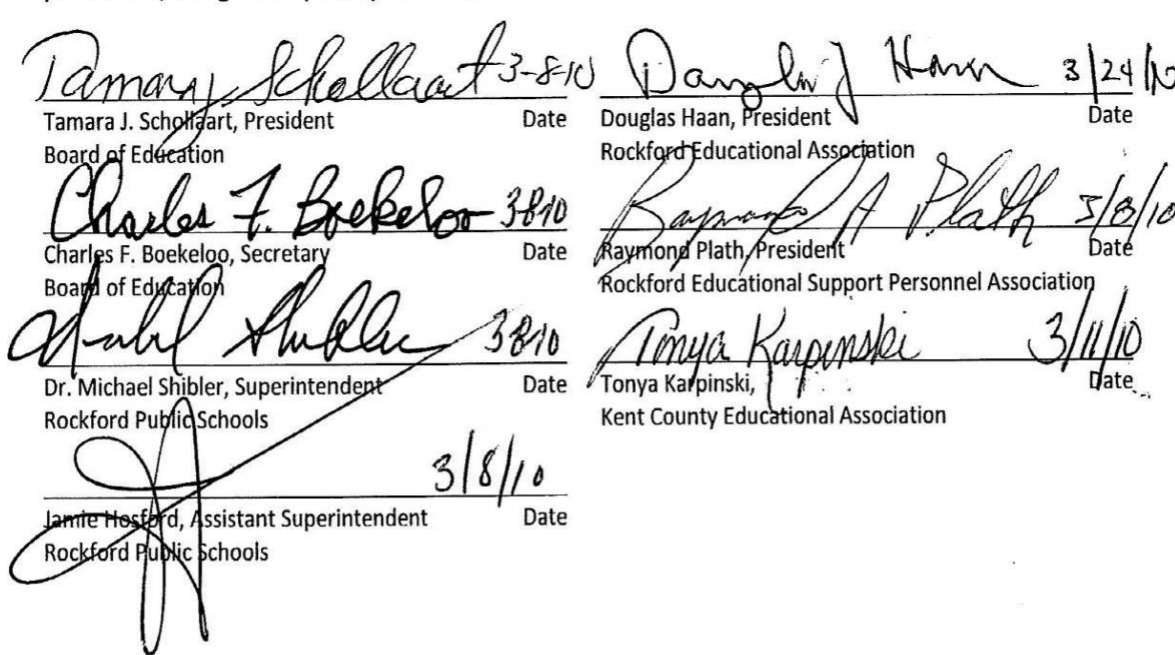 Tamara J Schollaart 3-8-10
Tamara J. Schollaart, President Date
Board of Education
Charles F. Boekeloo 3810
Charles F. Boekeloo, Secretary Date
Board of Education
3810
Dr. Michael Shibler, Superintendent Date
Rockford Public Schools
3/8/10
Jamie Hosford, Assistant Superintendent Date
Rockford Public Schools
Douglas J Haan 3/24/10
Douglas Haan, President Date
Rockford Educational Association
Raymond A Plath 3/8/10
Raymond Plath, President Date
Rockford Educational Support Personnel Association
Tonya Karpinski 3/11/10
Tonya Karpinski, Date
Kent County Educational Association